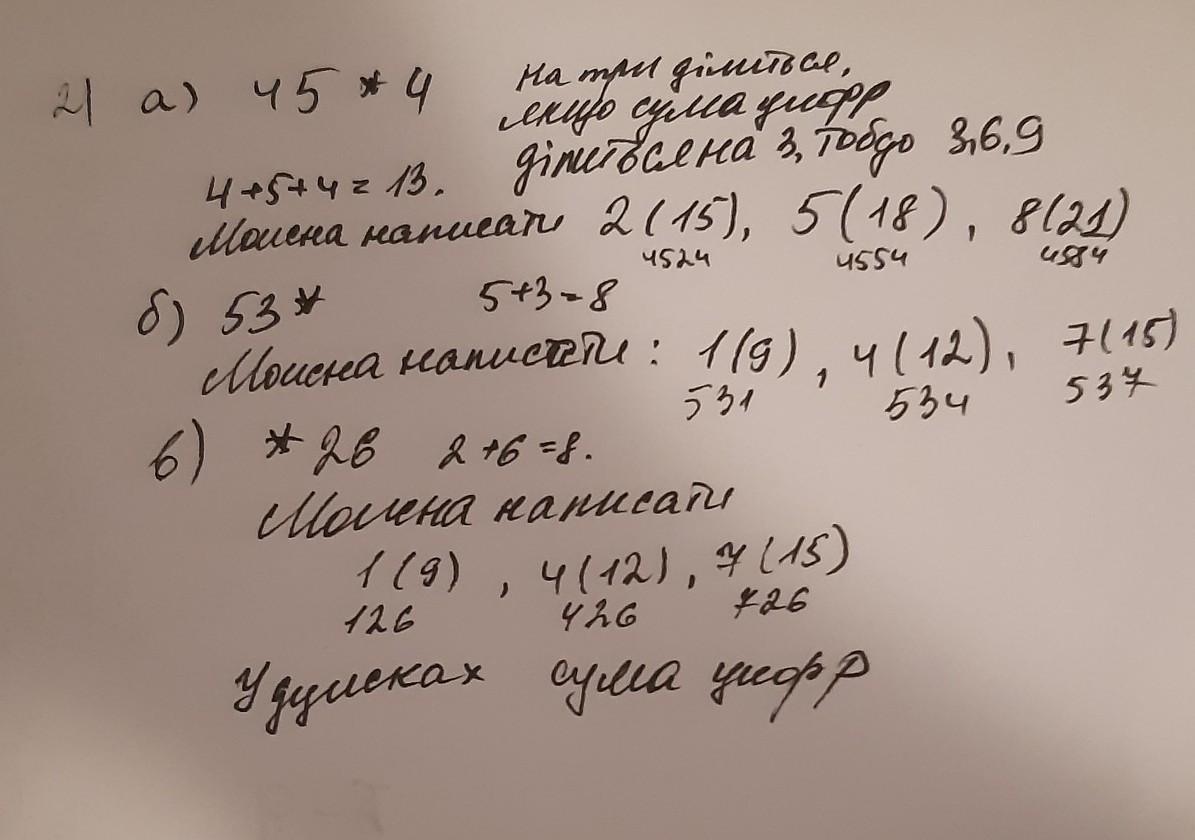 2) а) 45 * 4 На три ділиться,
якщо сума цифр
ділиться на 3, тобдо 3,6,9
4+5+4 = 13.
Можна написати 2 (15), 5 (18), 8 (21)
4524 4554 4584
б) 53* 5+3=8
Можна написати : 1(9), 4 (12), 7(15)
531 534 537
в) *26 2+6=8.
Можна написати
1 (9), 4 (12), 7 (15)
126 426 726
У дужках сума цифр